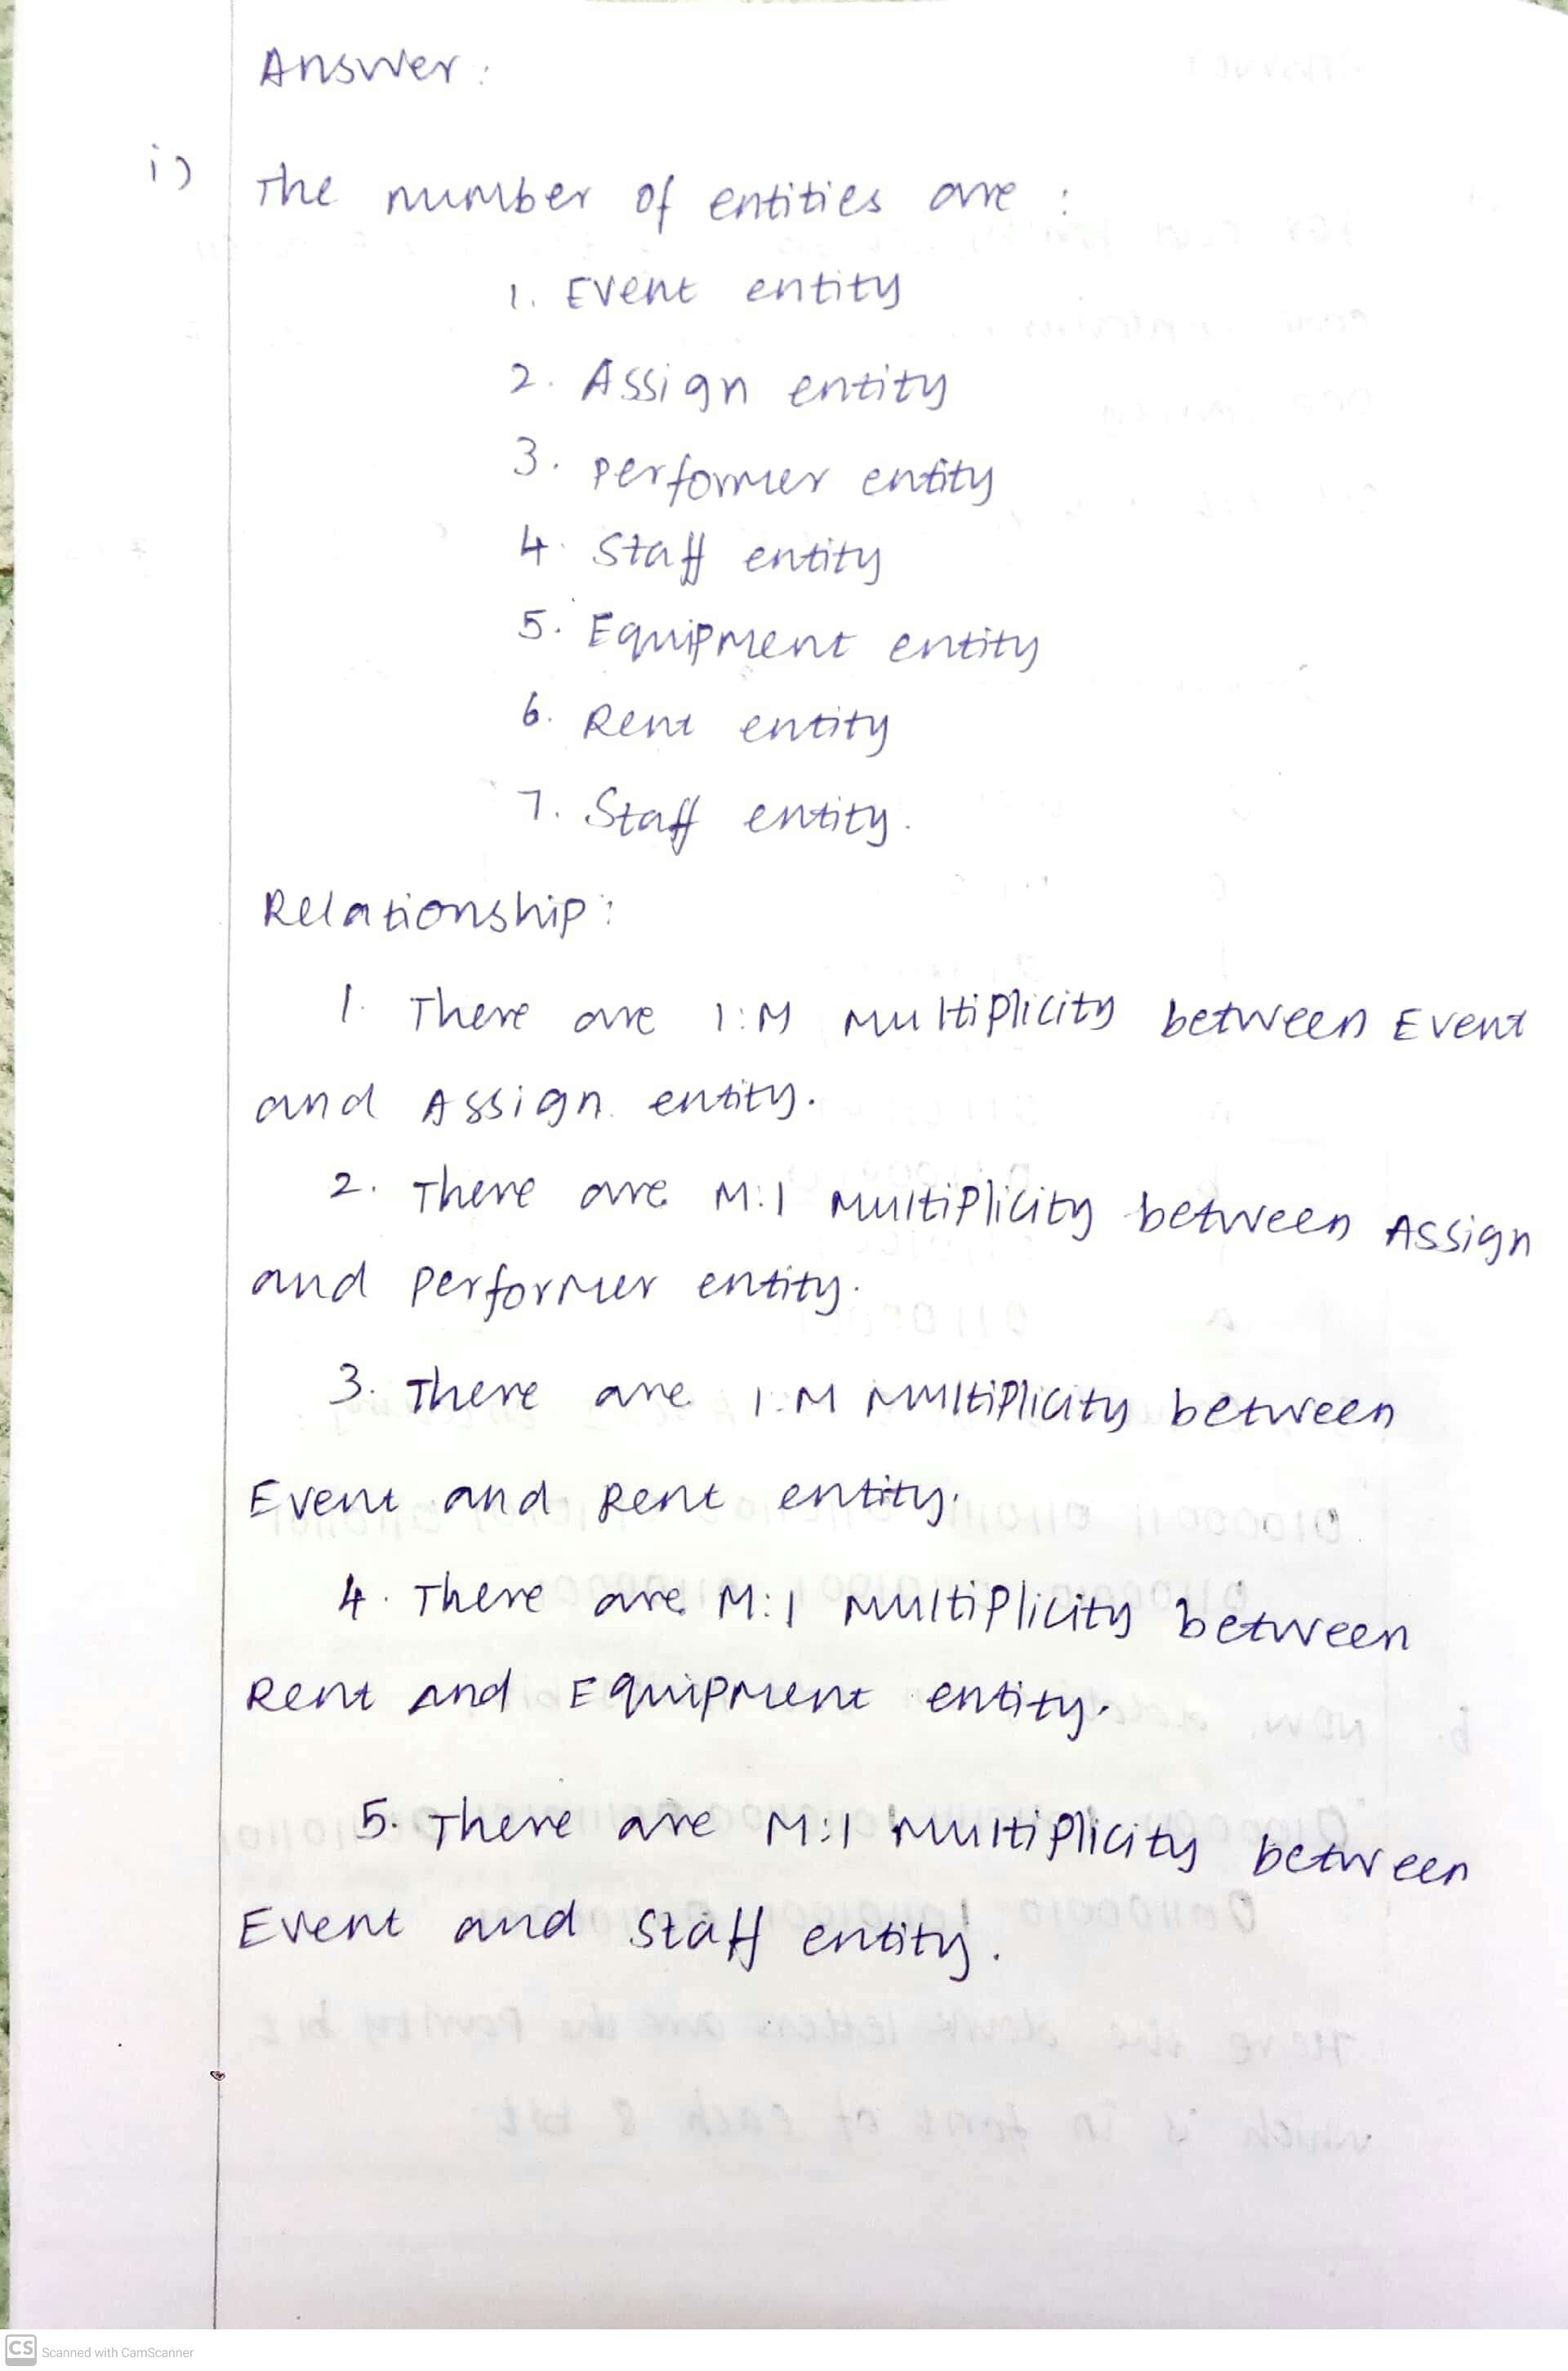 Answer:
i) The number of entities are :
1. Event entity
2. Assign entity
3. Performer entity
4. Staff entity
5. Equipment entity
6. Rent entity
7. Staff entity.
Relationship:
1. There are 1:M Multiplicity between Event
and Assign entity.
2. There are M:1 Multiplicity between Assign
and Performer entity.
3. There are 1:M Multiplicity between
Event and Rent entity.
4. There are M:1 Multiplicity between
Rent and Equipment entity.
5. There are M:1 Multiplicity between
Event and Staff entity.
CS Scanned with CamScanner